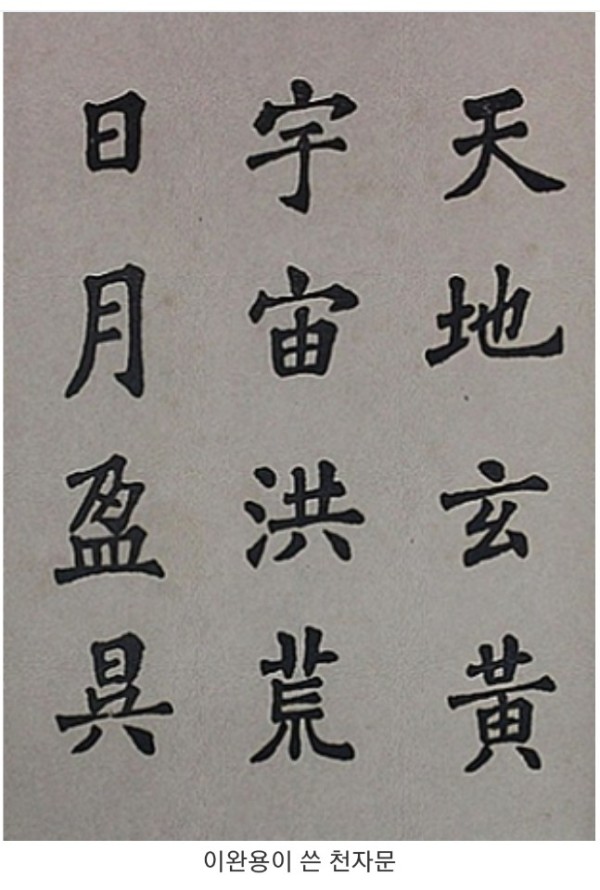 天地玄黃
宇宙洪荒
日月盈昃
이완용이 쓴 천자문